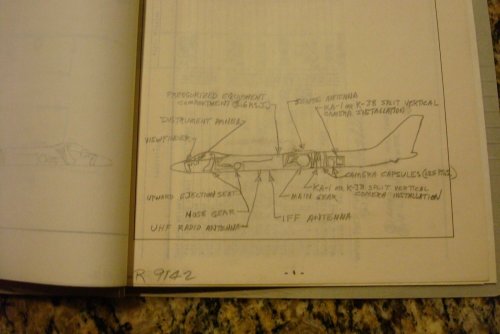 PRESSURIZED EQUIPMENT
COMPARTMENT
SENSE ANTENNA
KA-1 OR K-38 SPLIT VERTICAL
CAMERA INSTALLATION
INSTRUMENT PANEL
VIEWFINDER
CAMERA CAPSULES
UPWARD EJECTION SEAT
KA-1 OR K-38 SPLIT VERTICAL
CAMERA INSTALLATION
MAIN GEAR
NOSE GEAR
IFF ANTENNA
UHF RADIO ANTENNA
R 9142